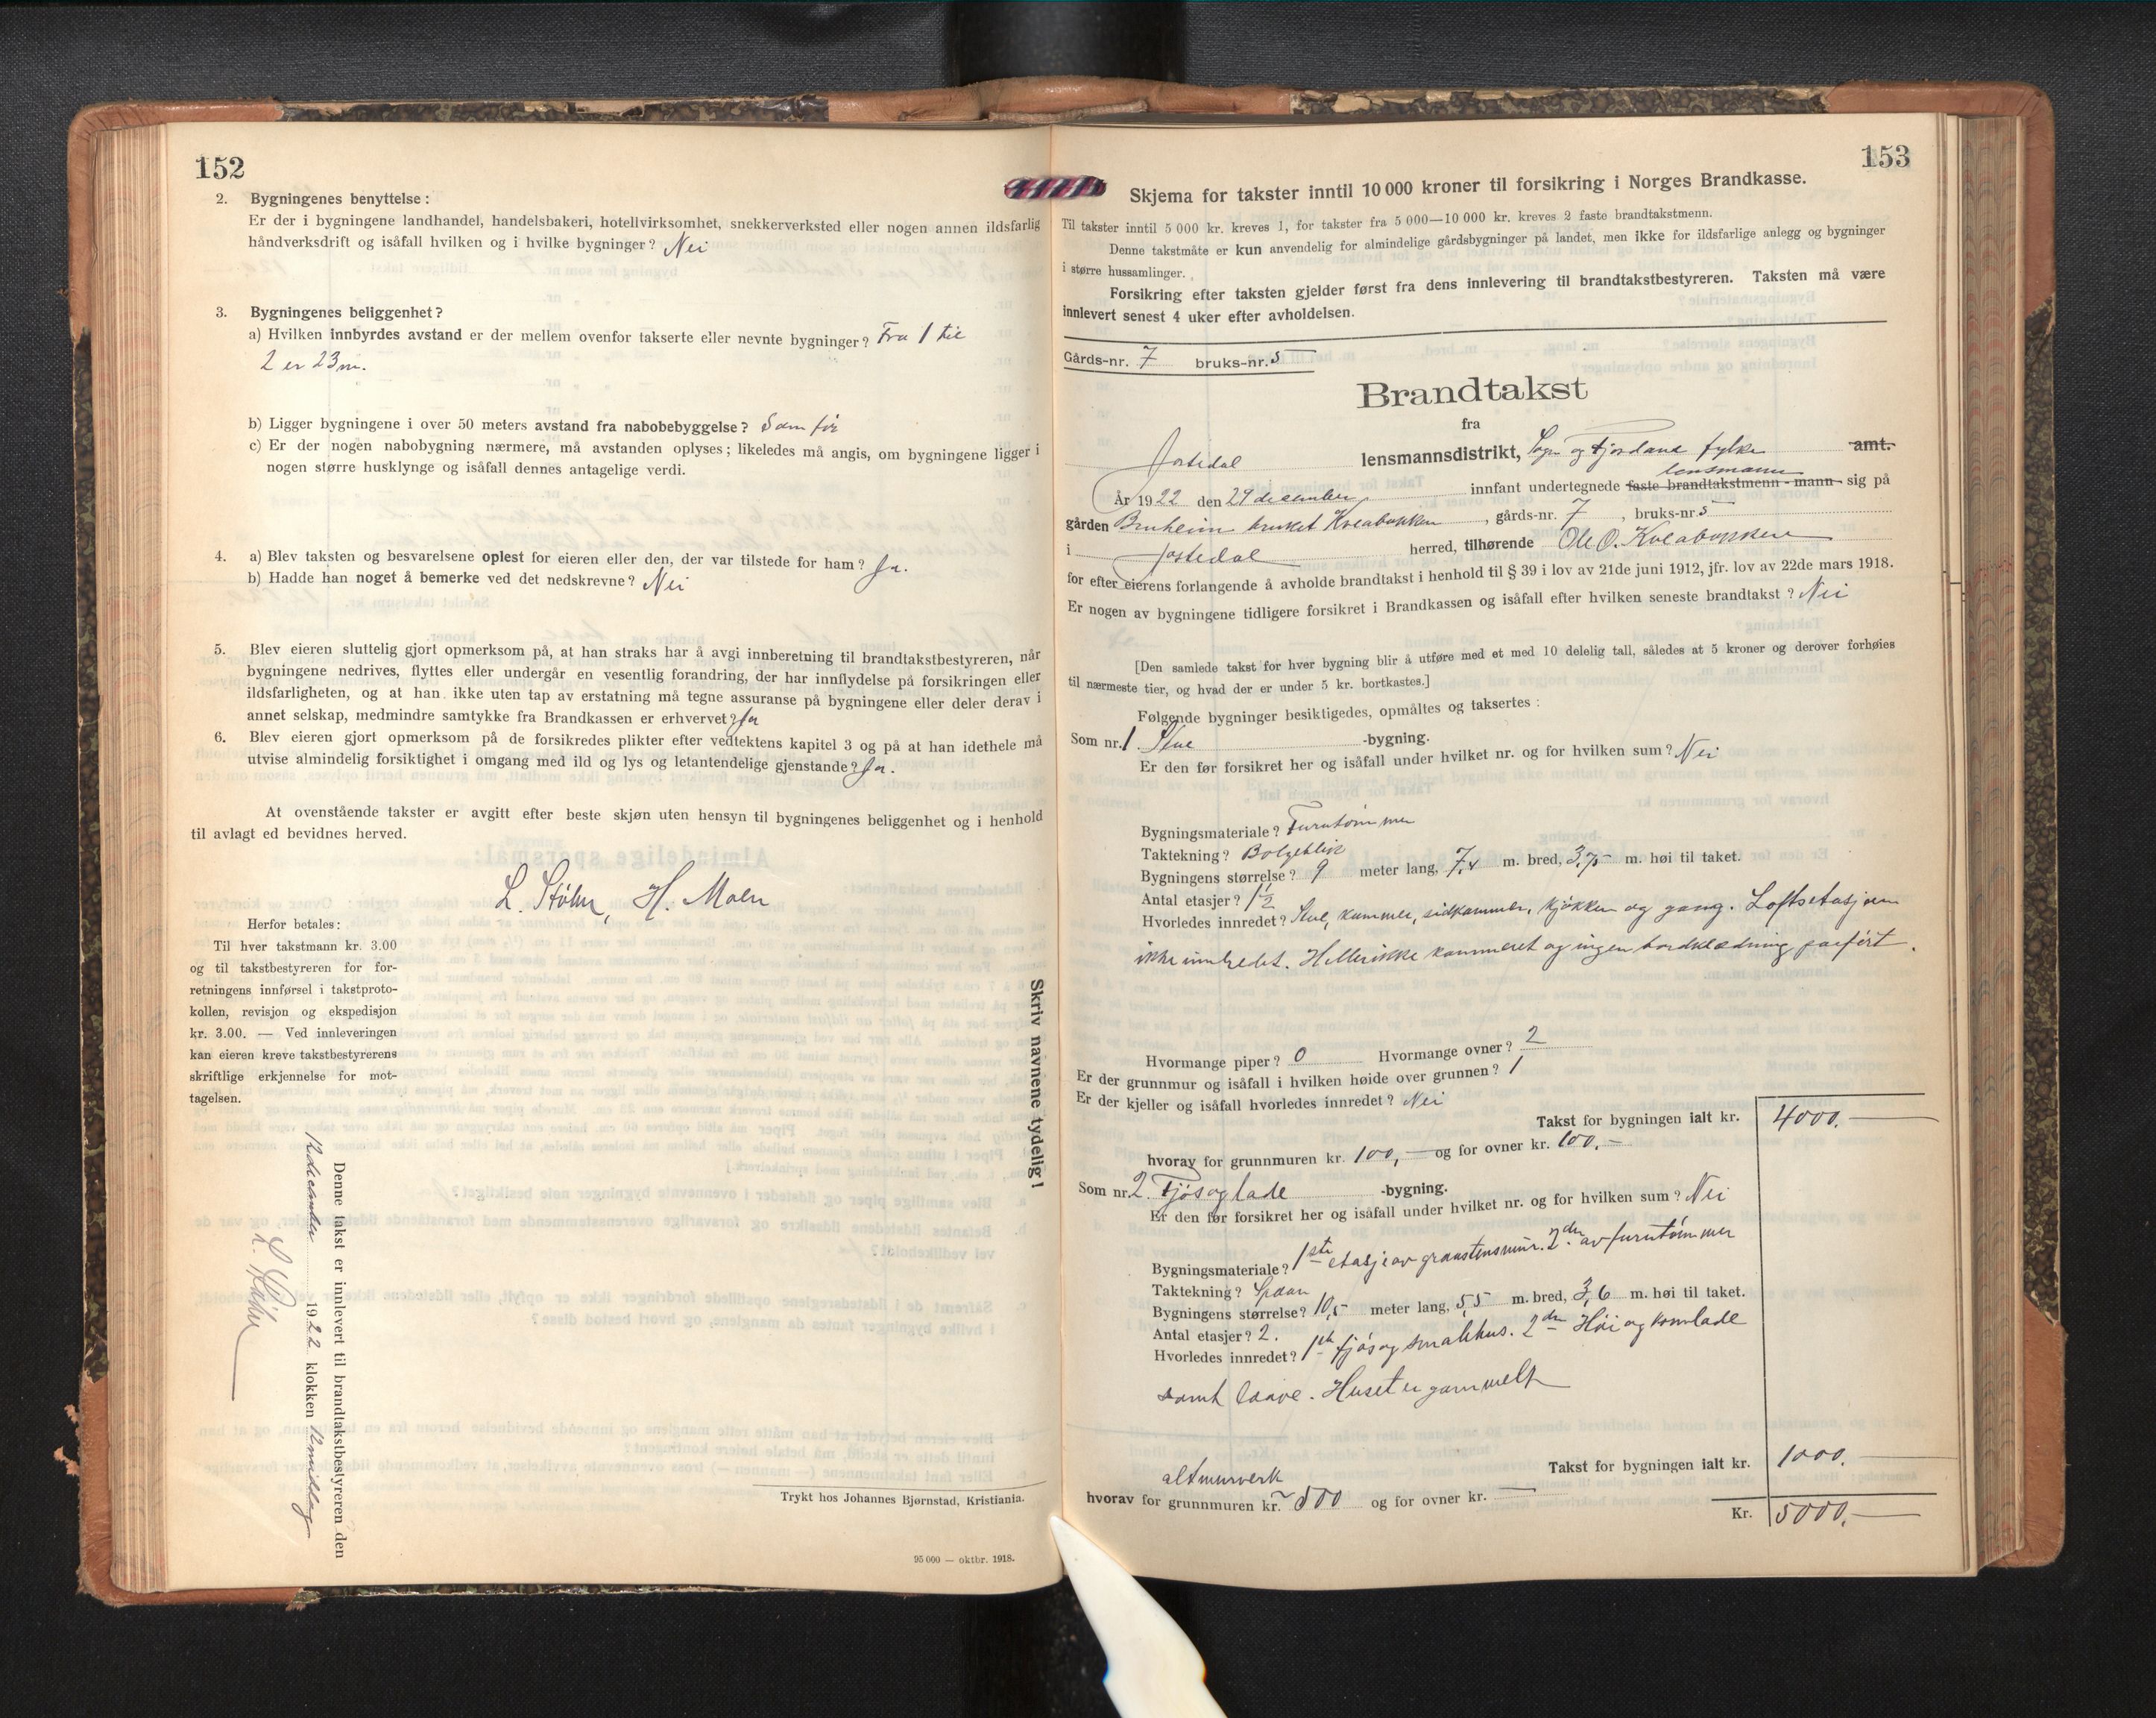 152
2. Bygningenes benyttelse :
Er der i bygningene landhandel, handelsbakeri, hotellvirksomhet, snekkerverksted eller nogen annen ildsfarlig
håndverksdrift og isåfall hvilken og i hvilke bygninger? Nei
3. Bygningenes beliggenhet?
a) Hvilken innbyrdes avstand er der mellem ovenfor takserte eller nevnte bygninger? Fra 1 til
2 er 23 m.
b) Ligger bygningene i over 50 meters avstand fra nabobebyggelse? Som før
c) Er der nogen nabobygning nærmere, må avstanden oplyses; likeledes må angis, om bygningene ligger i
nogen større husklynge og isåfall dennes antagelige verdi.
4. a) Blev taksten og besvarelsene oplest for eieren eller den, der var tilstede for ham? Ja.
b) Hadde han noget å bemerke ved det nedskrevne? Nei
5. Blev eieren sluttelig gjort opmerksom på, at han straks har å avgi innberetning til brandtakstbestyreren, når
bygningene nedrives, flyttes eller undergår en vesentlig forandring, der har innflydelse på forsikringen eller
ildsfarligheten, og at han ikke uten tap av erstatning må tegne assuranse på bygningene eller deler derav i
annet selskap, medmindre samtykke fra Brandkassen er erhvervet? Ja
6. Blev eieren gjort opmerksom på de forsikredes plikter efter vedtektens kapitel 3 og på at han idethele må
utvise almindelig forsiktighet i omgang med ild og lys og letantendelige gjenstande? Ja.
At ovenstående takster er avgitt efter beste skjøn uten hensyn til bygningenes beliggenhet og i henhold
til avlagt ed bevidnes herved.
L. Støhn, H. Moen
Herfor betales:
Til hver takstmann kr. 3.00
og til takstbestyreren for for-
retningens innførsel i takstproto-
kollen, revisjon og ekspedisjon
kr. 3.00. — Ved innleveringen
kan eieren kreve takstbestyrerens
skriftlige erkjennelse for mot-
tagelsen.
Skriv navnene tydelig!
Denne takst er innlevert til brandtakstbestyreren den
december 1922 klokken 12 middag
L. Støhn
Trykt hos Johannes Bjørnstad, Kristiania.
95 000 — oktbr. 1918.
153
Skjema for takster inntil 10 000 kroner til forsikring i Norges Brandkasse.
Til takster inntil 5 000 kr. kreves 1, for takster fra 5 000—10 000 kr. kreves 2 faste brandtakstmenn.
Denne takstmåte er kun anvendelig for almindelige gårdsbygninger på landet, men ikke for ildsfarlige anlegg og bygninger
i større hussamlinger.
Forsikring efter taksten gjelder først fra dens innlevering til brandtakstbestyreren. Taksten må være
innlevert senest 4 uker efter avholdelsen.
Gårds-nr. 7 bruks-nr. 5
Brandtakst
fra
Jostedal lensmannsdistrikt, Sogn og Fjordane fylke amt.
lensmann
År 1922 den 29 december innfant undertegnede faste brandtakstmenn - mann - sig på
gården Bruheim bruket Kveabakken, gårds-nr. 7, bruks-nr. 5
i Jostedal herred, tilhørende Ole O. Kveabakken
for efter eierens forlangende å avholde brandtakst i henhold til § 39 i lov av 21de juni 1912, jfr. lov av 22de mars 1918.
Er nogen av bygningene tidligere forsikret i Brandkassen og isåfall efter hvilken seneste brandtakst? Nei
[Den samlede takst for hver bygning blir å utføre med et med 10 delelig tall, således at 5 kroner og derover forhøies
til nærmeste tier, og hvad der er under 5 kr. bortkastes.]
Følgende bygninger besiktigedes, opmåltes og taksertes :
Som nr. 1. Stue -bygning.
Er den før forsikret her og isåfall under hvilket nr. og for hvilken sum? Nei
Bygningsmateriale? Furutømmer
Taktekning? Bølgeblik
Bygningens størrelse? 9 meter lang, 7,4 m. bred, 3,75 m. høi til taket.
Antal etasjer? 1½
Hvorledes innredet? Stue, kammer, sidkammer, kjøkken og gang. Loftsetasjen
ikke innredet. Heller ikke kammeret og ingen bordklædning paaført.
Hvormange piper? 0 Hvormange ovner? 2
Er der grunnmur og isåfall i hvilken høide over grunnen? 1
Er der kjeller og isåfall hvorledes innredet? Nei
Takst for bygningen ialt kr. 4000.—
hvorav for grunnmuren kr. 100,— og for ovner kr. 100,—
Som nr. 2. Fjøs og lade -bygning.
Er den før forsikret her og isåfall under hvilket nr. og for hvilken sum? Nei
Bygningsmateriale? 1ste etasje av graastensmur. 2den av furutømmer
Taktekning? Spaan
Bygningens størrelse? 10,5 meter lang, 5,5 m. bred, 3,6 m. høi til taket.
Antal etasjer? 2.
Hvorledes innredet? 1ste fjøs og smalehus. 2den Høi og kornlade
samt laave. Huset er gammelt
Takst for bygningen ialt kr. 1000.
alt murverk
hvorav for grunnmuren kr. 500 og for ovner kr. —
Kr. 5000.—